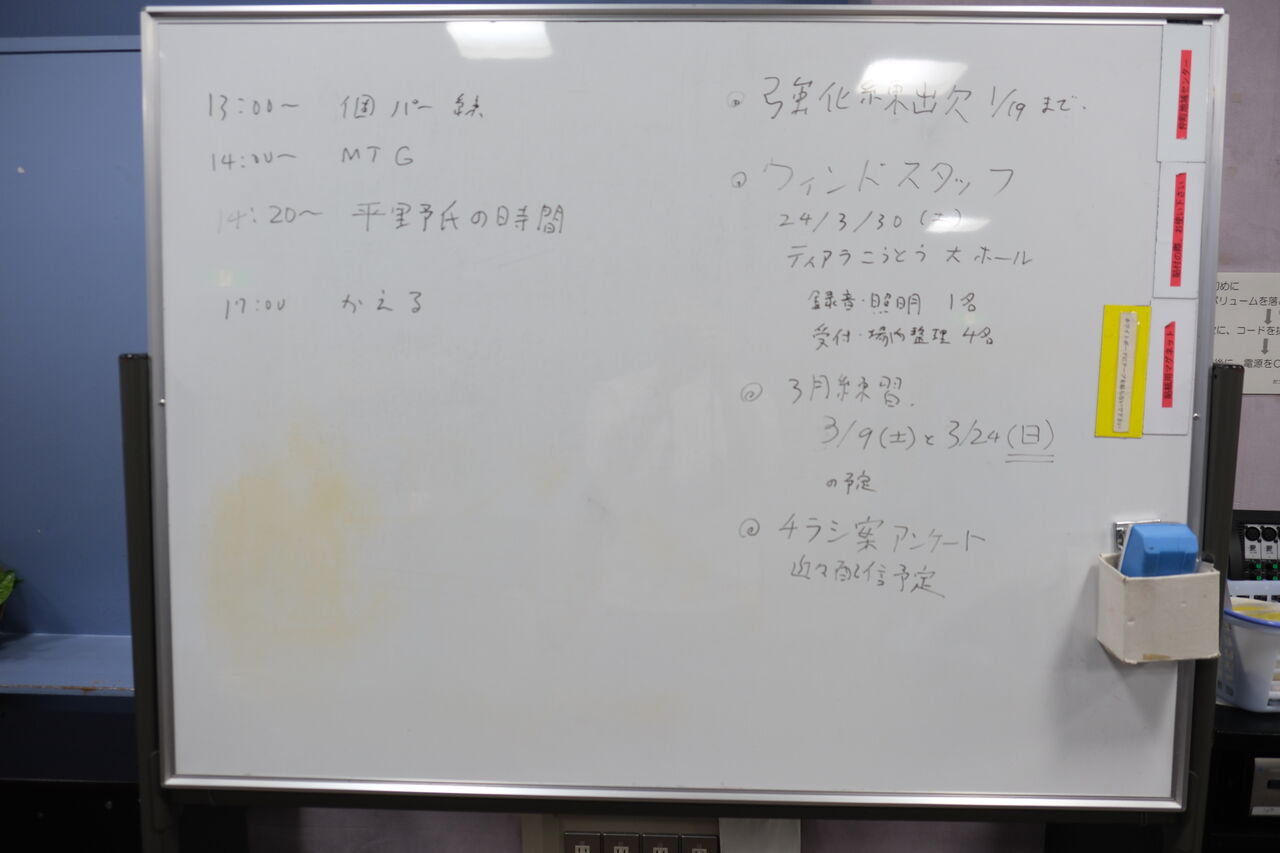 13:00〜 個パー練
14:00〜 MTG
14:20〜 平野氏の時間
17:00 かえる
◎ 強化練出欠 1/19 まで.
◎ ウィンドスタッフ
24/3/30(土)
ティアラこうとう 大ホール
録音・照明 1名
受付・場内整理 4名
◎ 3月練習.
3/9(土)と3/24(日)
の予定
◎ チラシ案アンケート
近々配信予定
初めに
ボリュームを落
に、コードを抜
後に、電源をO